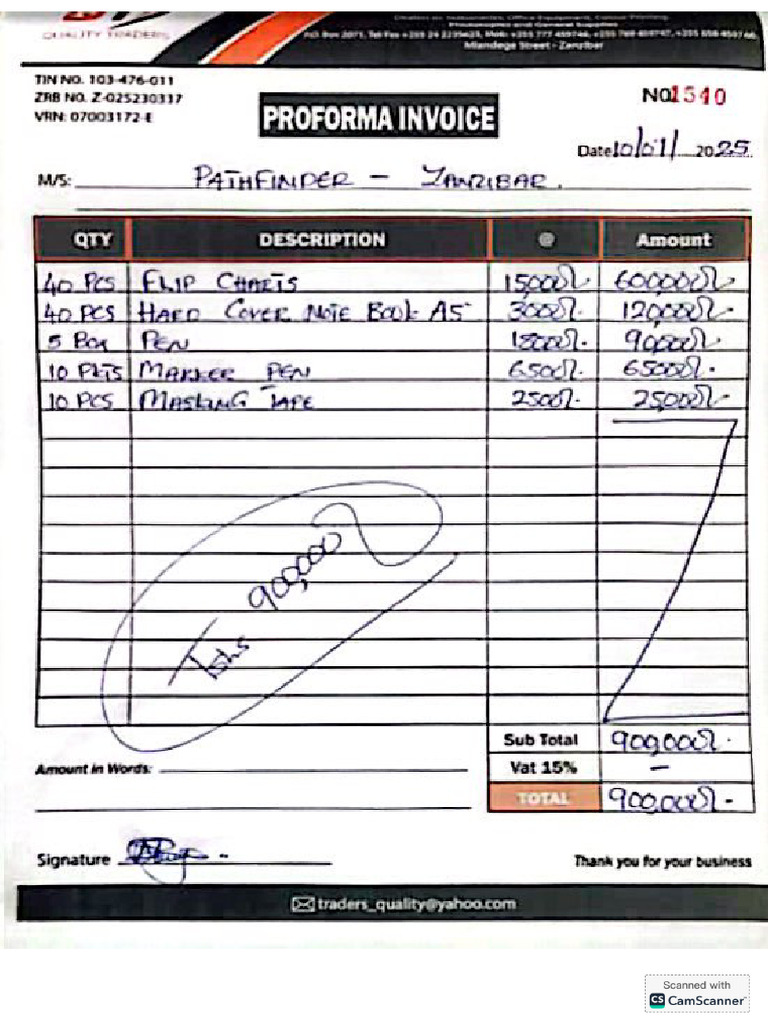 QUALITY TRADERS
Dealers in: Stationeries, Office Equipment, Colour Printing,
Photocopies and General Supplies
P.O. Box 2071, Tel/Fax
Mlandege Street - Zanzibar
TIN NO. 103-476-011
ZRB NO. Z-025230317
VRN: 07003172-E
NO 1540
PROFORMA INVOICE
Date 10/01/ 2025
M/S: PATHFINDER - ZANZIBAR.
QTY DESCRIPTION @ Amount
40 PCS FLIP CHARTS 15,000/- 600,000/-
40 PCS HARD COVER NOTE BOOK A5 3000/- 120,000/-
5 Box PEN 18000/- 90,000/-
10 PKTS MARKER PEN 6500/- 65,000/-
10 PCS MASKING TAPE 2500/- 25,000/-
Tshs 900,000/-
Sub Total 900,000/-
Amount in Words:
Vat 15% -
TOTAL 900,000/-
Signature
Thank you for your business
traders_quality@yahoo.com
Scanned with
CS CamScanner